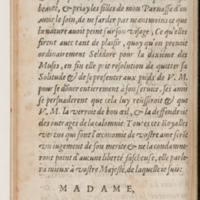 beauté, & priay les filles de mon Parnasse d'en
auoir le soin, de ne farder par neantmoins ce que
la nature auoit peint sur son visage; Ce qu'elles
firent auec tant de plaisir, quoy qu'on prenoit
ordinairement Solidore pour la dixiesme des
Muses, en fin elle prit resolution de quitter sa
Solitude & de se presenter aux pieds de V. M.
pour se donner entierement à son seruice, ses amis
se persuaderent que cela luy reüssiroit & que
V. M. la verroit de bon œil, & la deffendroit
des outrages de la calomnie. Toutes ces Royalles
vertus qui font l'œconomie de vostre ame seruiront
jugement de son merite & ne la condamneront
point d'aucune liberté fascheuse, elle parlera
mieux à vostre Majesté, de laquelle ie suis;
MADAME,